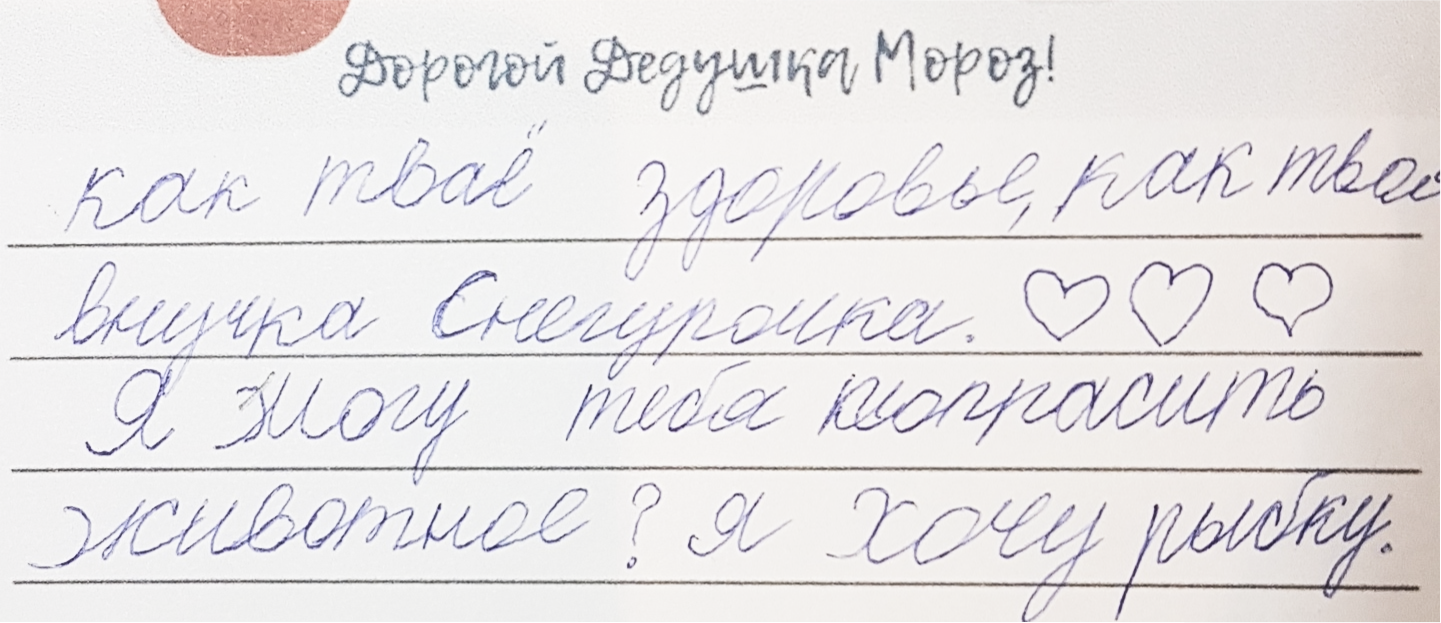 Дорогой Дедушка Мороз!
как тваё здоровье, как твоя
внучка Снегурочка. ♡♡♡
Я могу тебя попрасить
животное? я хочу рыбку.